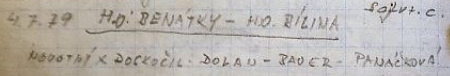 4.7.79 H.D: BENÁTKY - H.D. BÍLINA
NOVOTNÝ X DOSKOČIL. DOLAN - BAUER - PANÁČKOVÁ